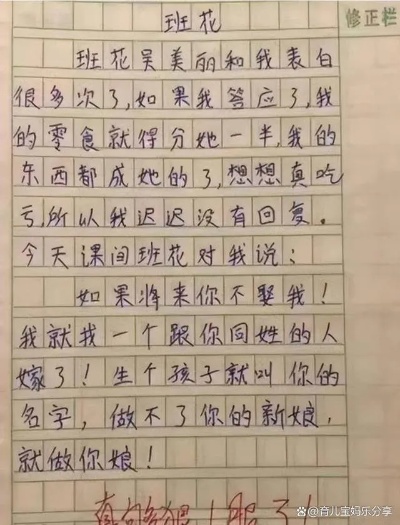 班花
修正栏
班花吴美丽和我表白
很多次了,如果我答应了,我
的零食就得分她一半,我的
东西都成她的了,想想真吃
亏,所以我迟迟没有回复。
今天课间班花对我说:
如果将来你不娶我!
我就找一个跟你同姓的人
嫁了!生个孩子就叫你的
名字,做不了你的新娘,
就做你娘!
头条 @育儿宝妈乐分享